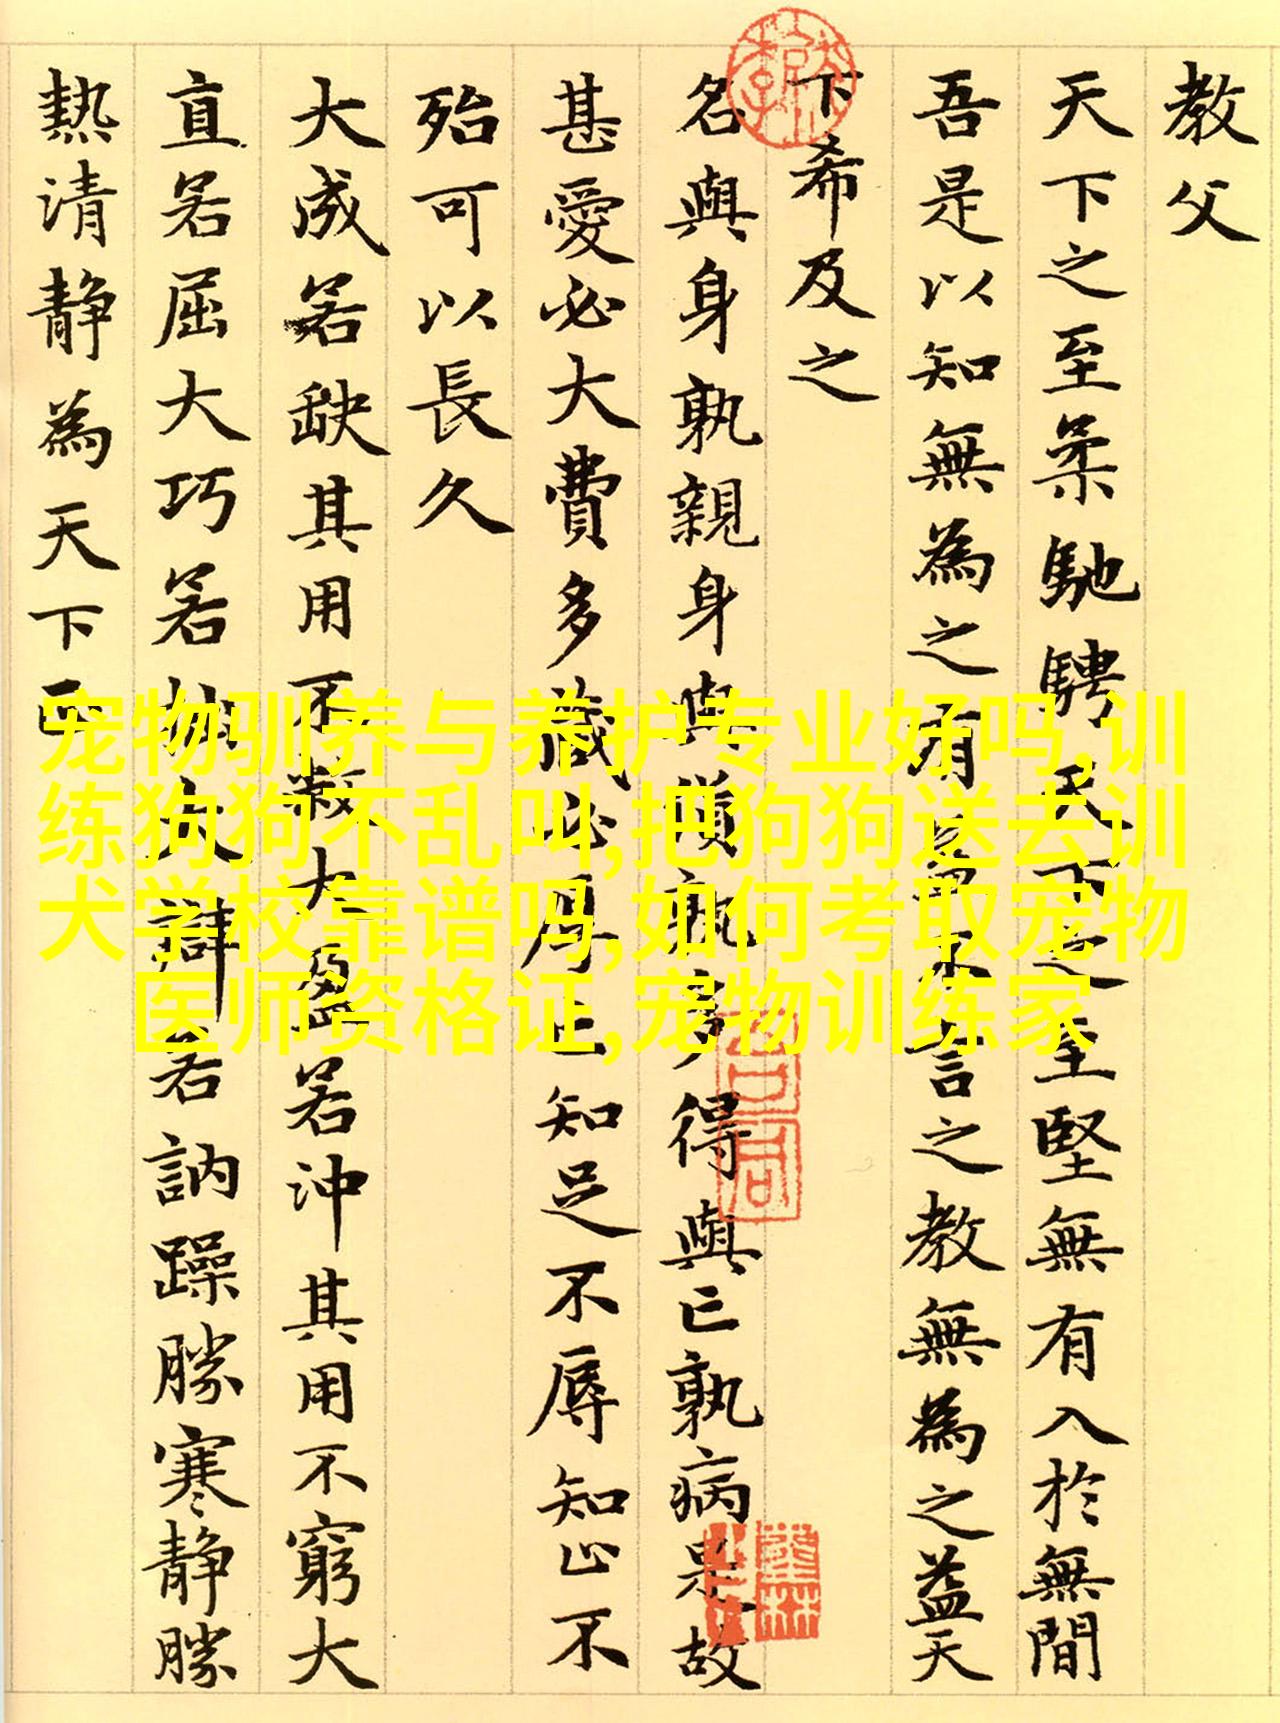 教父
天下之至柔馳騁天下之至堅無有入於無間
吾是以知無為之有益不言之教無為之益天
下希及之
名與身孰親身與貨孰多得與亡孰病是故
甚愛必大費多藏必厚亡知足不辱知止不
殆可以長久
大成若缺其用不敝大盈若沖其用不窮大
直若屈大巧若拙大辯若訥躁勝寒静勝
熱清静為天下正
宠物驯养与养护专业好吗,训
练狗狗不乱叫,把狗狗送去训
犬学校靠谱吗,如何考取宠物
医师资格证,宠物训练家